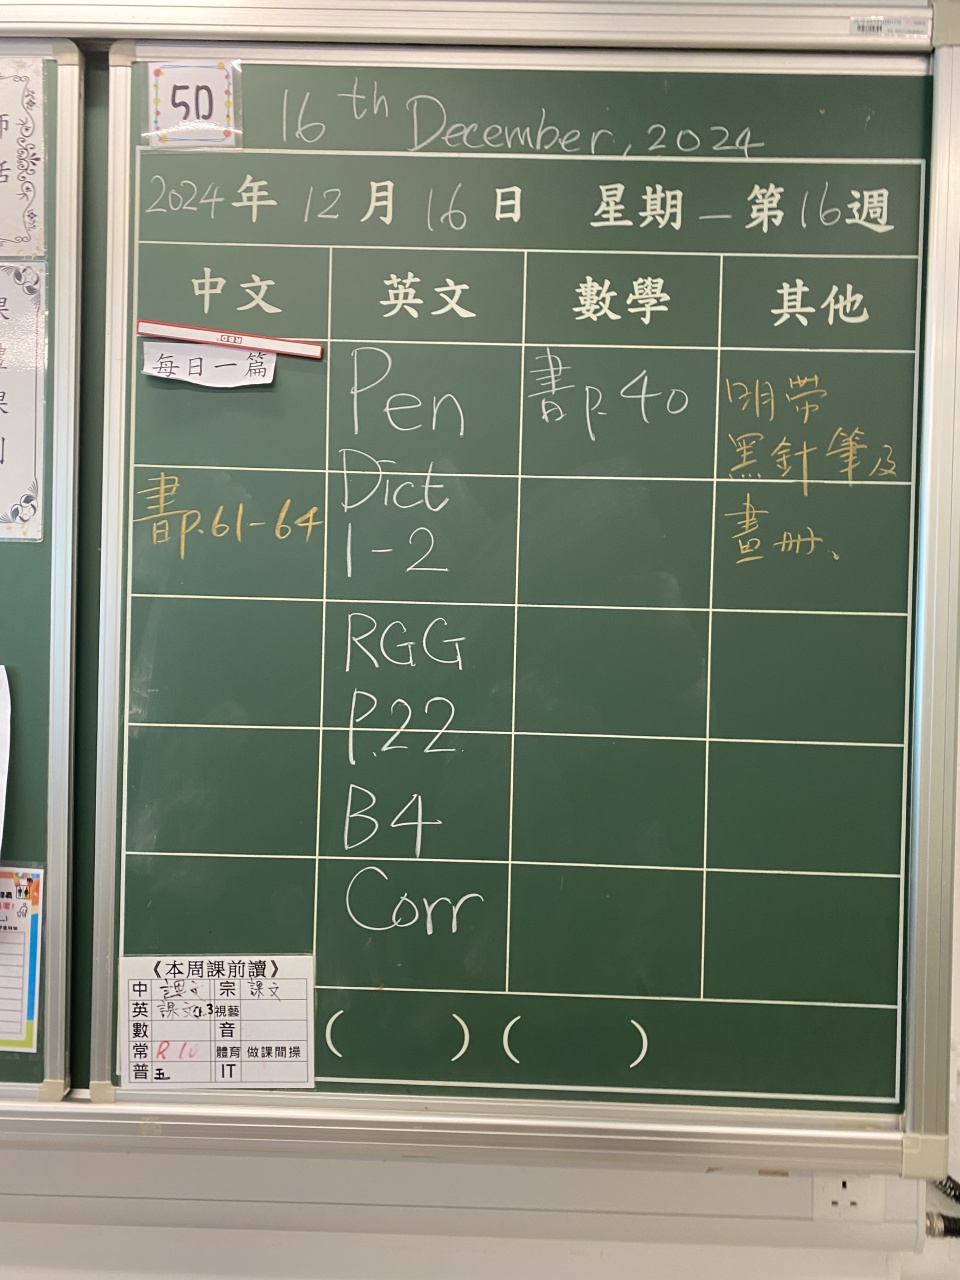 5D
16th December, 2024
2024年 12月 16日 星期一 第16週
中文 英文 數學 其他
每日一篇
書p.61-64
Pen
Dict
1-2
RGG
P.22
B4
Corr
書p.40
明帶
黑針筆及
畫冊、
《本周課前讀》
中 課文 宗 課文
英 課文 視藝
數 音
常 R10 體育 做課間操
普 五 IT
( ) ( )